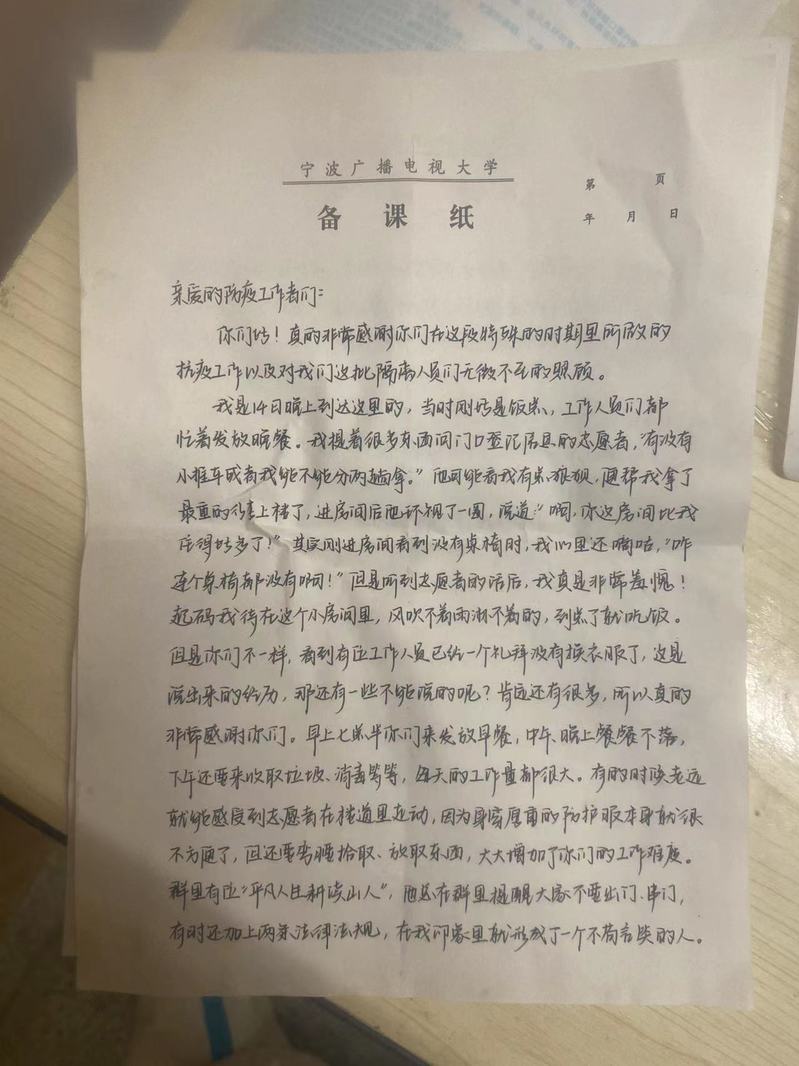 宁波广播电视大学
备课纸
第 页
年 月 日
亲爱的防疫工作者们:
你们好!真的非常感谢你们在这段特殊的时期里所做的
抗疫工作以及对我们这批隔离人员们无微不至的照顾。
我是14日晚上到达这里的,当时刚好是饭点,工作人员们都
忙着发放晚餐。我提着很多东西问门口登记信息的志愿者,“有没有
小推车或者我能不能分两趟拿。”他可能看我有点狼狈,便帮我拿了
最重的往上楼了,进房间后他环视了一圈,说道:“啊,你这房间比我
住得好多了!”其实刚进房间看到没有桌椅时,我心里还嘀咕,“咋
连个桌椅都没有啊!”但是听到志愿者的话后,我真是非常羞愧!
起码我待在这个小房间里,风吹不着雨淋不着的,到点了就吃饭。
但是你们不一样,看到有位工作人员已经一个礼拜没有换衣服了,这是
说出来的经历,那还有一些不能说的呢?肯定还有很多,所以真的
非常感谢你们。早上七点半你们来发放早餐,中午、晚上餐餐不落,
下午还要来收取垃圾、消毒等等,每天的工作量都很大。有的时候老远
就能感受到志愿者在楼道里走动,因为身穿厚重的防护服本身就很
不方便了,但还要弯腰拾取、放取东西,大大增加了你们的工作难度。
群里有位“平凡人生耕读山人”,他总在群里提醒大家不要出门、串门,
有时还加上两条法律法规,在我印象里就形成了一个不苟言笑的人。